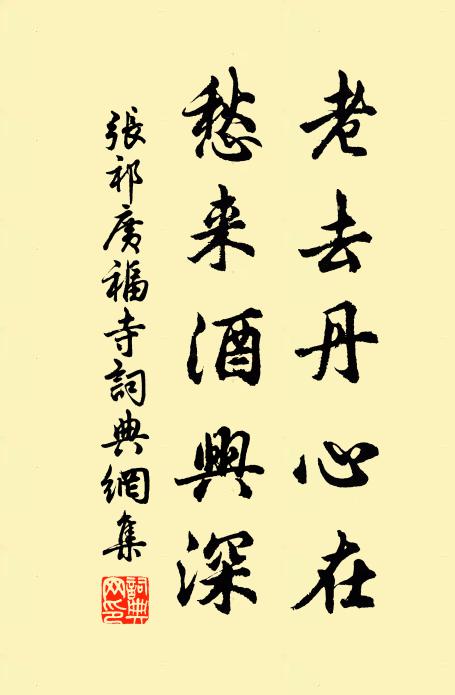 老去丹心在
愁来酒興深
張祁廣福寺詞典網集
詞典网印